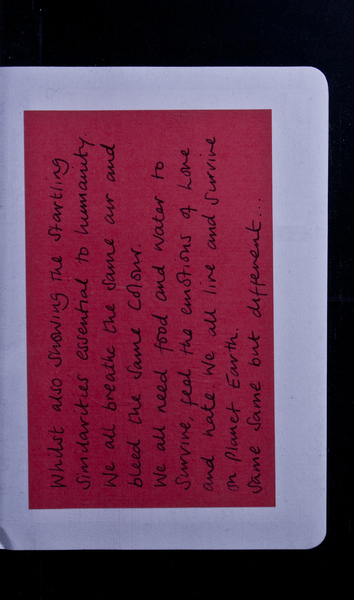 Whilst also showing the startling
similarities essential to humanity
We all breathe the same air and
bleed the same colour.
We all need food and water to
survive, feel the emotions of love
and hate. We all live and survive
on Planet Earth.
Same same but different...